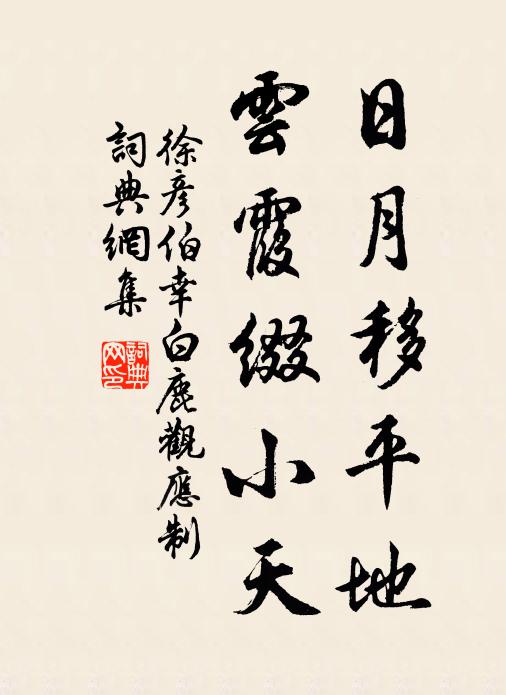 日月移平地
雲霞綴小天
徐彦伯幸白鹿觀應制
詞典網集
詞典
网印